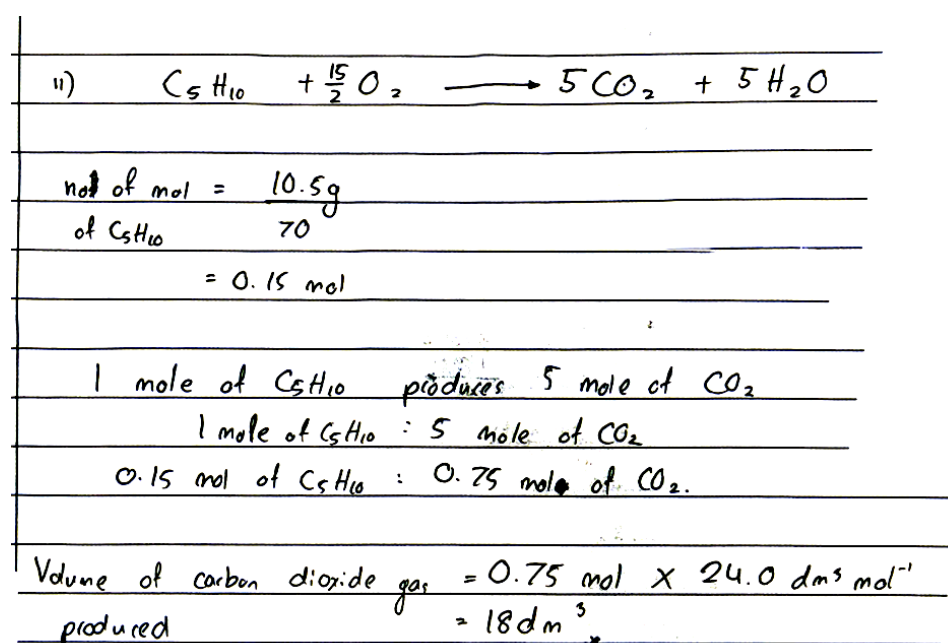 ii) C₅H₁₀ + 15/2 O₂ ⟶ 5CO₂ + 5H₂O
no of mol = 10.5g
of C₅H₁₀ 70
= 0.15 mol
1 mole of C₅H₁₀ produces 5 mole of CO₂
1 mole of C₅H₁₀ : 5 mole of CO₂
0.15 mol of C₅H₁₀ : 0.75 mol of CO₂.
Volume of carbon dioxide gas = 0.75 mol × 24.0 dm³ mol⁻¹
produced = 18dm³